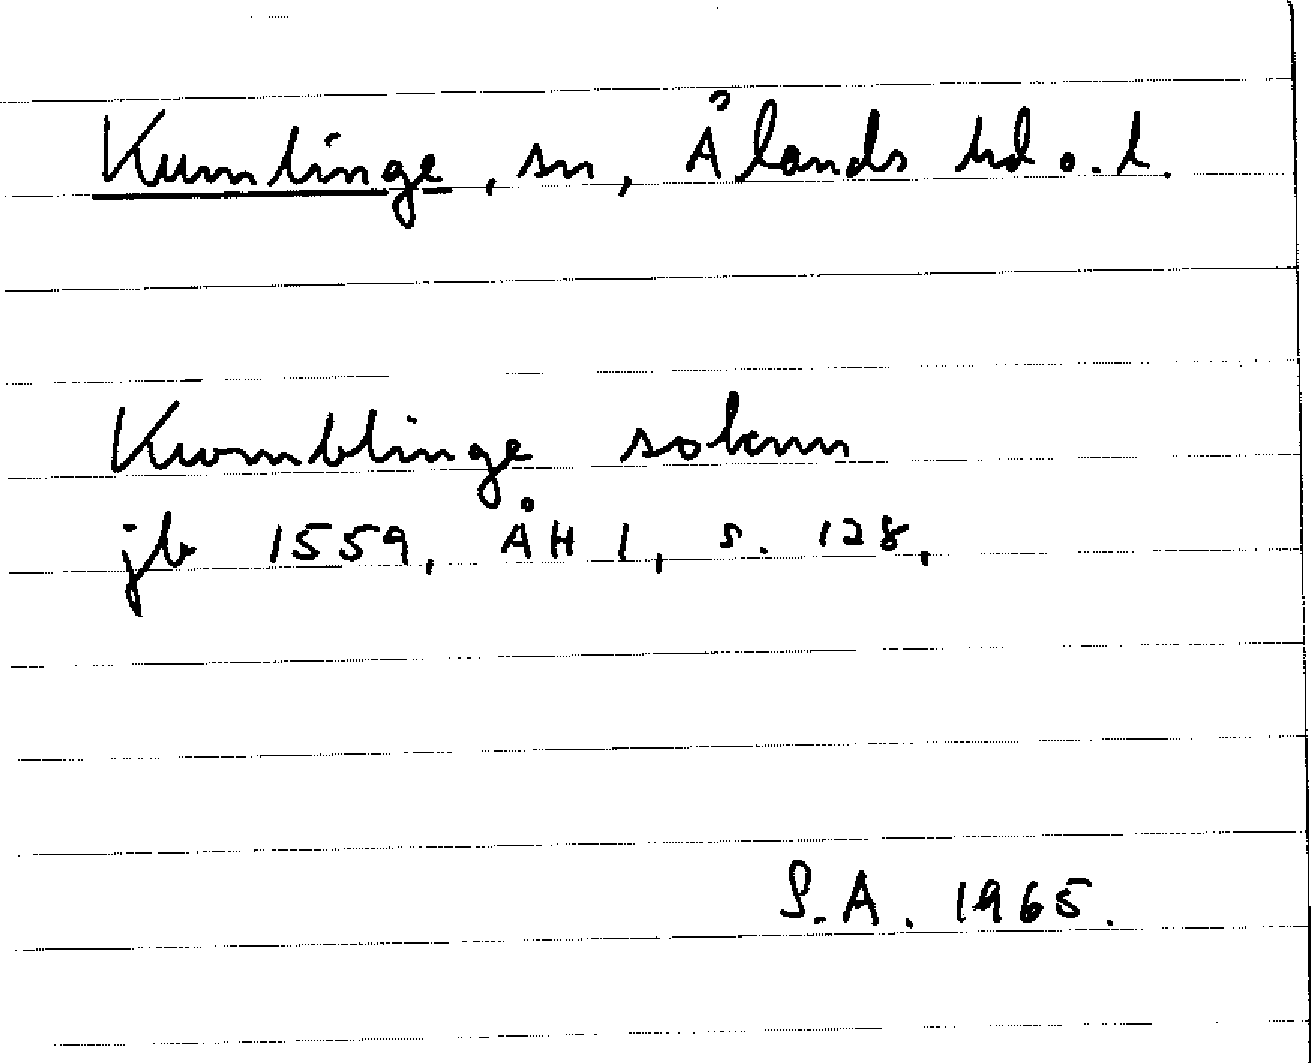 Kumlinge, sn, Ålands hd o. l.
Kwmblinge soknn
jb 1559, ÅH 1, s. 128.
S.A. 1965.